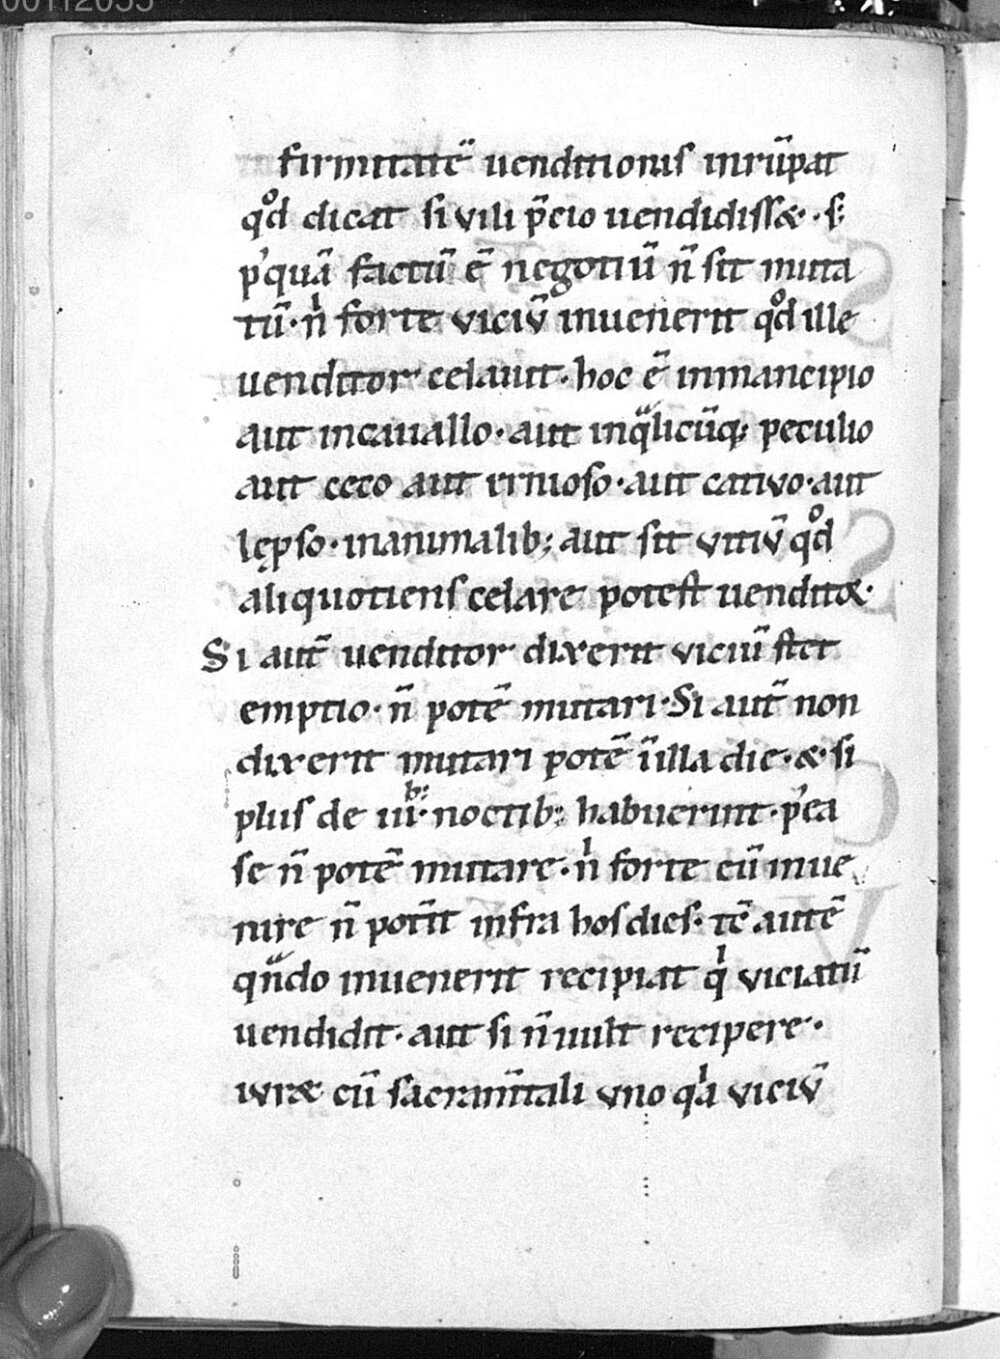 firmitatē uenditionis inrūpat
qͦd dicat si vili p̄cio uendidiss&. s;
p'quā factū ē negotiū n̄ sit muta
tū. nͥ forte viciū inuenerit qͦd ille
uenditor celauit. hoc ē inmancipio
aut incauallo. aut inqͣlicūq; peculio
aut ceco aut irnioso. aut cativo. aut
lępso. inanimalib; aut sit vitiū qͦd
aliquotiens celare potest uendit&.
Si aut̄ uenditor dixerit viciū stet
emptio. n̄ potē mutari. Si aut̄ non
dixerit mutari potē īilla die. &. si
plus de iii. b; noctib; habuerint. p'ea
se n̄ potē mutare. nͥ forte cū inue
nire n̄ pot̄it infra hos dies. tē autē
qn̄do inuenerit recipiat qͥ viciatū
uendidit. aut si n̄ uult recipere.
iur& cū sacram̄tali vno qͥa viciū